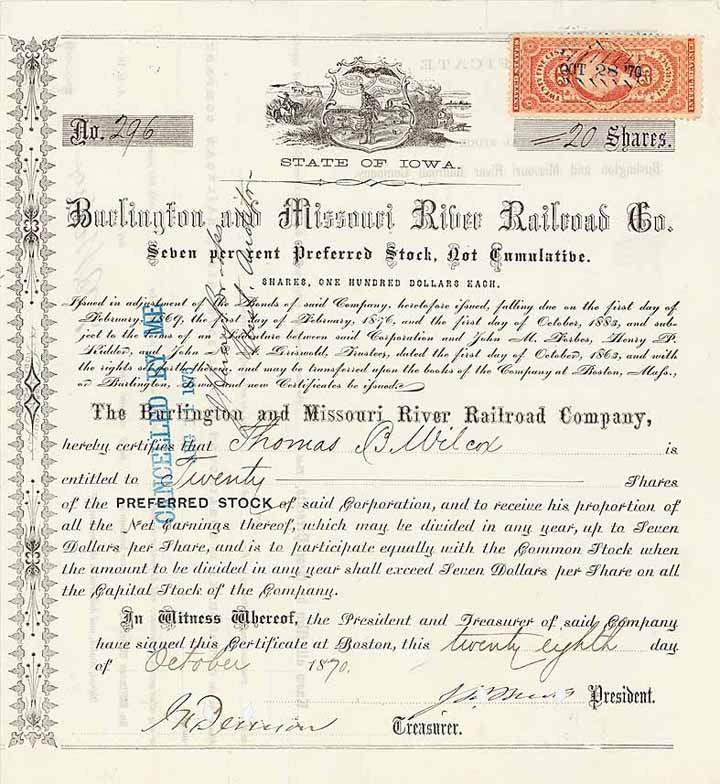 UNITED STATES
INTER. REVENUE
OCT 28 70
No. 296
20 Shares.
STATE OF IOWA.
Burlington and Missouri River Railroad Co.
Seven per cent Preferred Stock, Not Cumulative.
SHARES, ONE HUNDRED DOLLARS EACH.
Issued in adjustment of the Bonds of said Company, heretofore issued, falling due on the first day of
February, 1869, the first day of February, 1876, and the first day of October, 1883, and sub-
ject to the terms of an Indenture between said Corporation and John M. Forbes, Henry P.
Kidder, and John N. A. Griswold, Trustees, dated the first day of October, 1863, and with
the rights set forth therein, and may be transferred upon the books of the Company at Boston, Mass.,
or Burlington, Iowa, and new Certificates be issued.
The Burlington and Missouri River Railroad Company,
hereby certifies that Thomas B. Wilcox is
entitled to Twenty Shares
of the PREFERRED STOCK of said Corporation, and to receive his proportion of
all the Net Earnings thereof, which may be divided in any year, up to Seven
Dollars per Share, and is to participate equally with the Common Stock when
the amount to be divided in any year shall exceed Seven Dollars per Share on all
the Capital Stock of the Company.
In Witness Whereof, the President and Treasurer of said Company
have signed this Certificate at Boston, this twenty eighth day
of October 1870.
President.
J. N. Denison
Treasurer.
CANCELLED BY ME
1873
Auditor